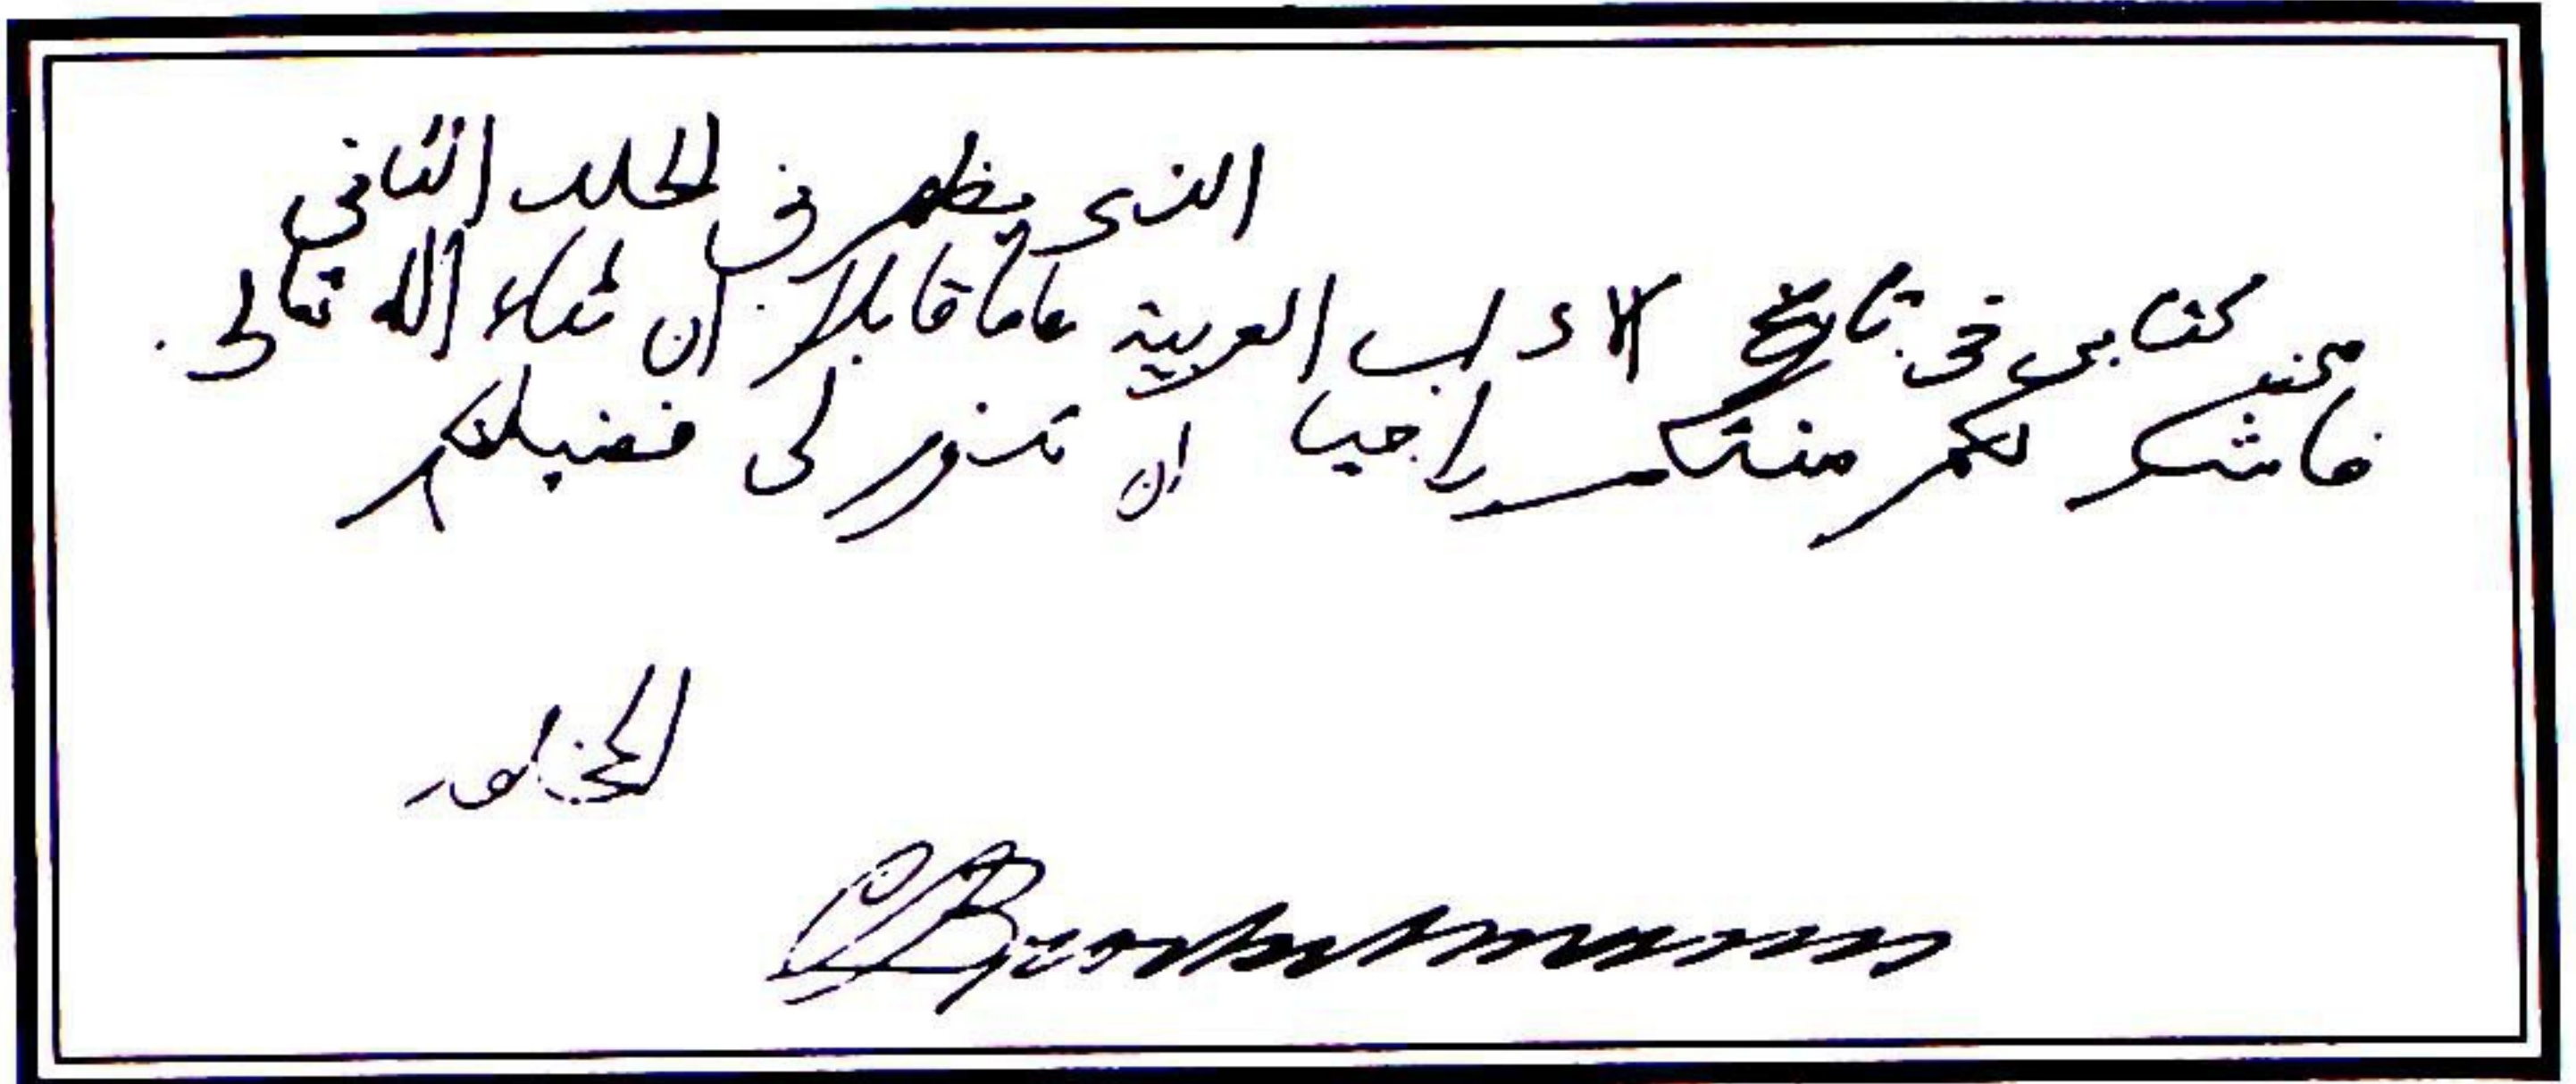 الذى يظهر فى المجلد الثانى
من كتابى فى تاريخ الاداب العربية عاما قابلا ان شاء الله تعالى .
فاشكر لكم منتكم راجيا ان لى فضيلتكم
المخلص
C Brockelmann